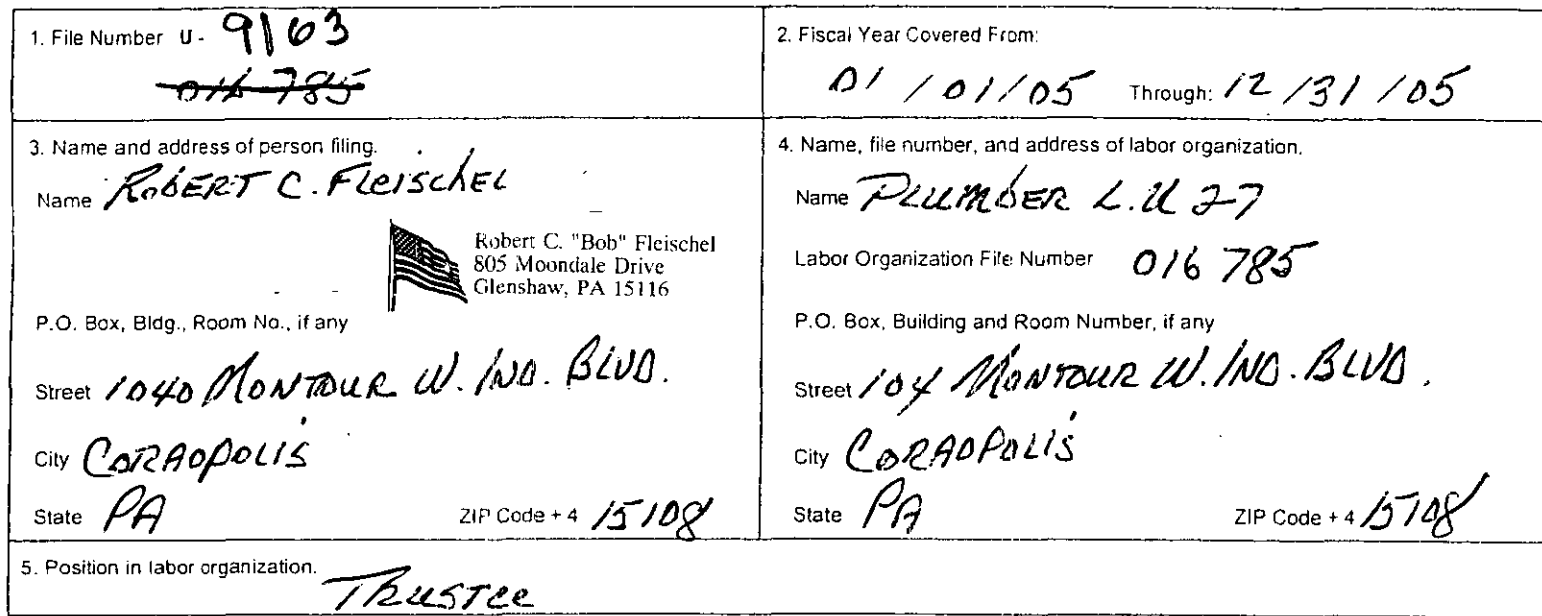 1. File Number U- 9163
016 785
2. Fiscal Year Covered From:
01/01/05 Through: 12/31/05
3. Name and address of person filing.
Name ROBERT C. FLEISCHEL
Robert C. "Bob" Fleischel
805 Moondale Drive
Glenshaw, PA 15116
P.O. Box, Bldg., Room No., if any
Street 1040 MONTOUR W. IND. BLVD.
City CORAOPOLIS
State PA ZIP Code + 4 15108
4. Name, file number, and address of labor organization.
Name PLUMBER L.U 27
Labor Organization File Number 016 785
P.O. Box, Building and Room Number, if any
Street 104 MONTOUR W. IND. BLVD.
City CORAOPOLIS
State PA ZIP Code + 4 15108
5. Position in labor organization. TRUSTEE